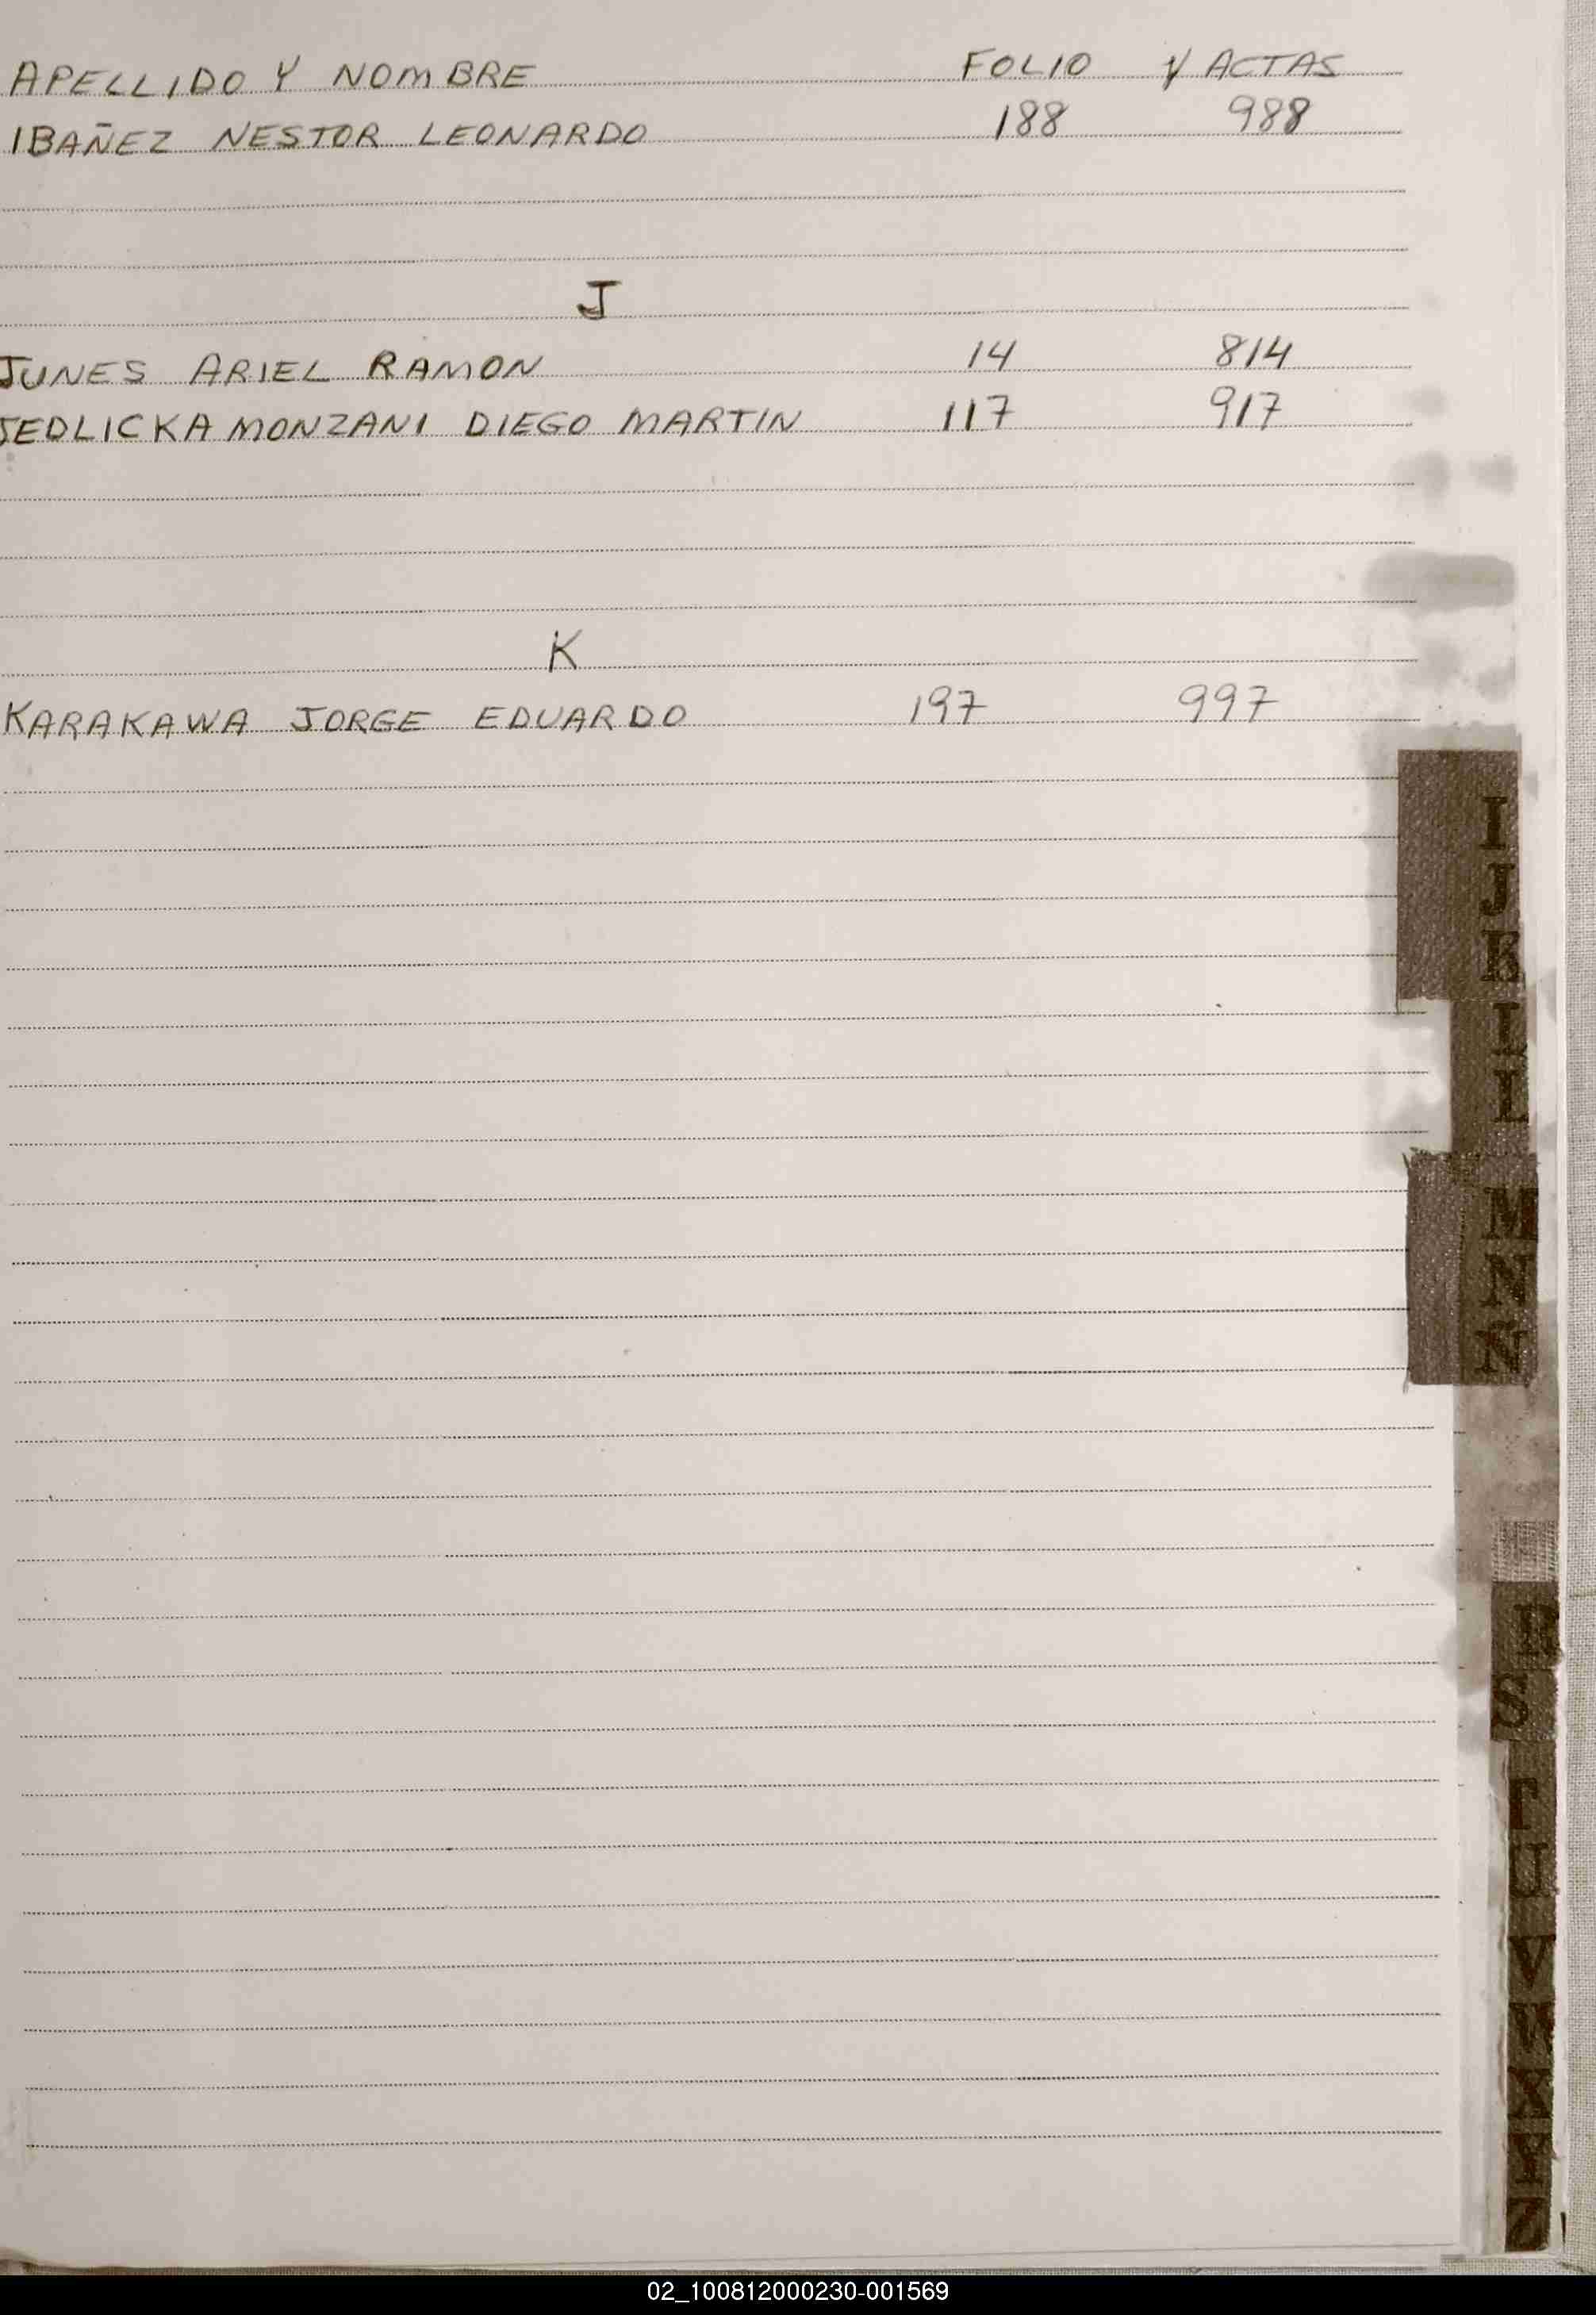 APELLIDO Y NOMBRE FOLIO Y ACTAS
IBAÑEZ NESTOR LEONARDO 188 988
J
JUNES ARIEL RAMON 14 814
JEDLICKA MONZANI DIEGO MARTIN 117 917
K
KARAKAWA JORGE EDUARDO 197 997
I
J
K
L
M
N
Ñ
R
S
T
U
V
W
X
Y
Z
02_100812000230-001569